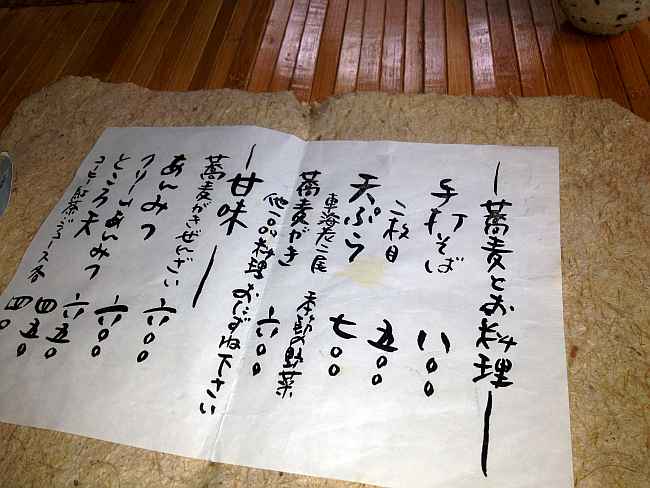 ー蕎麦とお料理ー
手打そば 八〇〇
二枚目 五〇〇
天ぷら 七〇〇
車海老二尾 季節の野菜
蕎麦がき 六〇〇
他一品料理おたずね下さい
ー甘味ー
蕎麦がきぜんざい
あんみつ 六〇〇
クリームあんみつ 六〇〇
ところ天 四五〇
コーヒー 紅茶 ジュース各 四〇